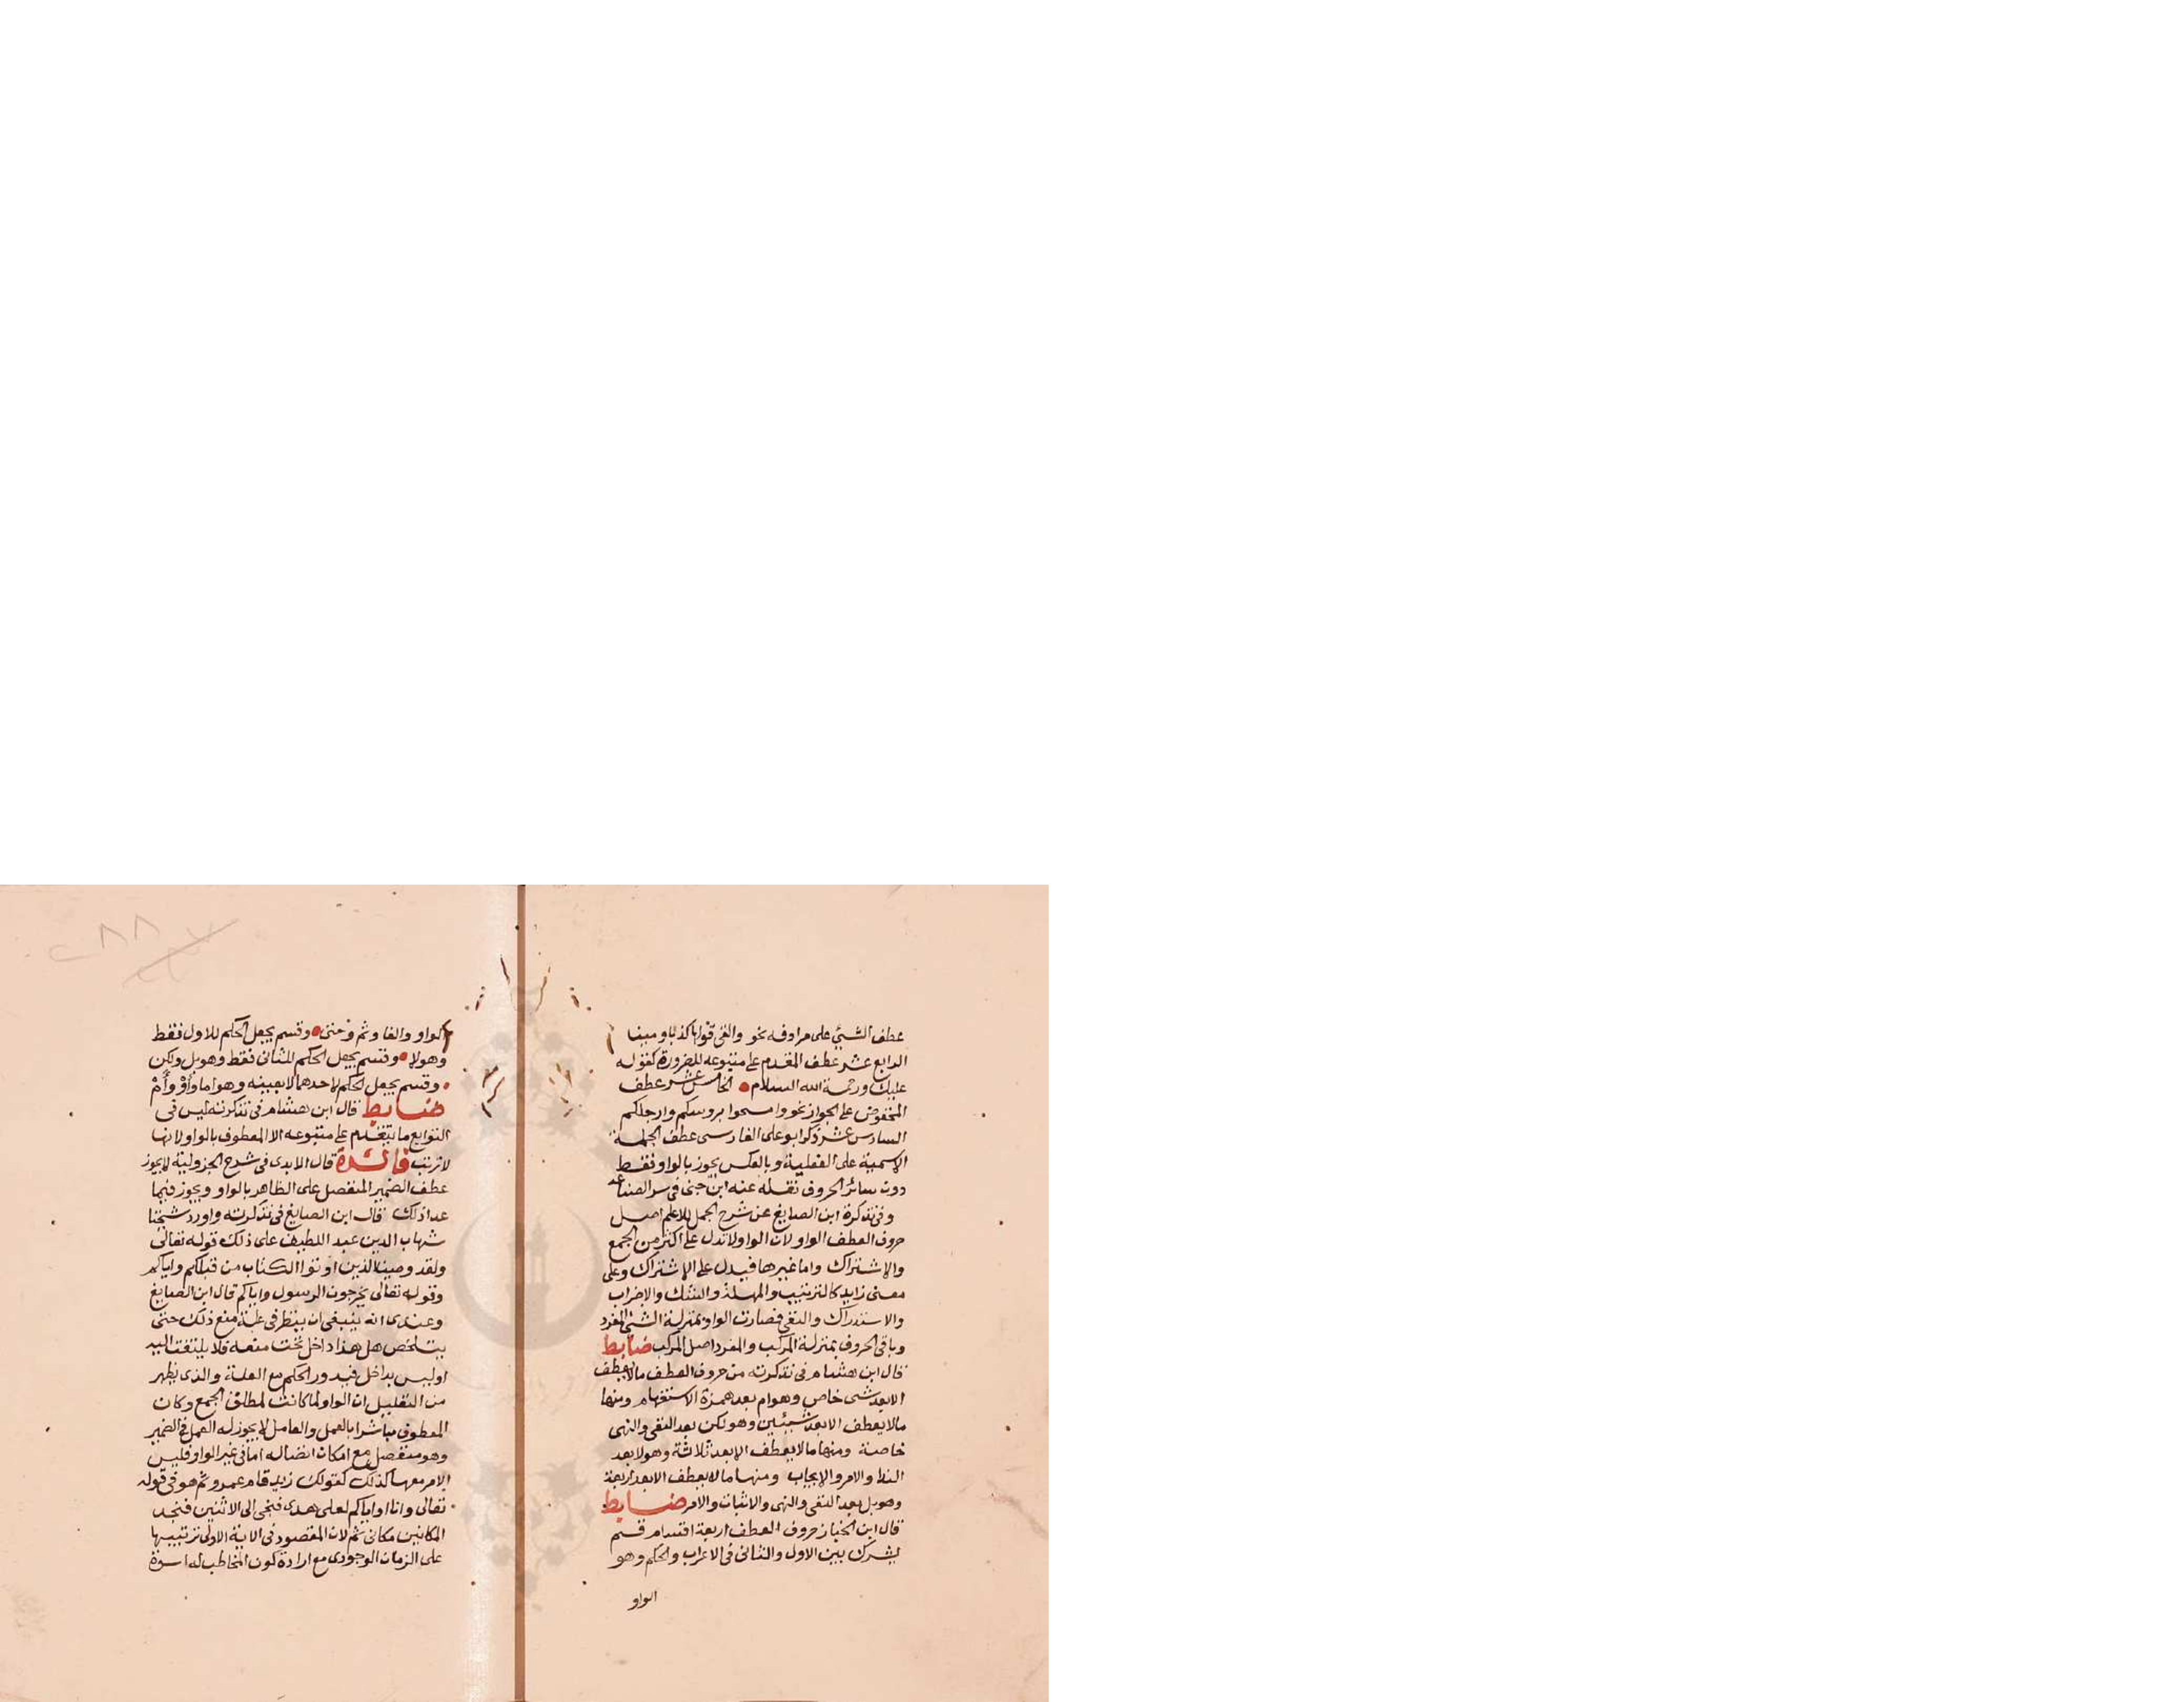 عطف الشيئ على مرادفه نحو والفى قولها كذبا ومينا
الرابع عشر عطف المقدم على متبوعه للضرورة كقوله
عليك ورحمة الله السلام الخامس عشر عطف
المخفوض على الجوار نحو وامسحوا بروسكم وارجلكم
السادس عشر ذكر ابو على الفارسى عطف الجملة
الاسمية على الفعلية وبالعكس يجوز بالواو فقط
دون سائر الحروف نقله عنه ابن جنى فى سر الصناعه
وفى تذكرة ابن الصايغ عن شرح الجمل للاعلم اصل
حروف العطف الواو لان الواو لا تدل على اكثر من الجمع
والاشتراك واما غيرها فيدل على الاشتراك وعلى
معنى زايد كالترتيب والمهلة والشك والاضراب
والاستدراك والنفى فصارت الواو بمنزلة الشئ المفرد
وباقى الحروف بمنزلة المركب والمفرد اصل المركب ضابط
قال ابن هشام فى تذكرته من حروف العطف مالا يعطف
الا بعد شى خاص وهو ام بعد همزة الاستفهام ومنها
مالا يعطف الا بعد شيئين وهو لكن بعد النفى والنهى
خاصة ومنها مالا يعطف الا بعد ثلاثة وهو لا بعد
الندا والامر والايجاب ومنها مالا يعطف الا بعد اربعة
وهو بل بعد النفى والنهى والاثبات والامر ضابط
قال ابن الخباز حروف العطف اربعة اقسام قسم
يشرك بين الاول والثانى فى الاعراب والحكم وهو
الواو
٢٨٨
الواو والفا وثم وحتى وقسم يجعل الحكم للاول فقط
وهو لا وقسم يجعل الحكم للثانى فقط وهو بل ولكن
وقسم يجعل الحكم لاحدهما لا بعينه وهو اما وأو وأم
ضابط قال ابن هشام فى تذكرته ليس فى
التوابع ما يتقدم على متبوعه الا المعطوف بالواو لانها
لا ترتب فائدة قال الابدى فى شرح الجزولية لا يجوز
عطف الضمير المنفصل على الظاهر بالواو ويجوز فيما
عدا ذلك قال ابن الصايغ فى تذكرته واورد شيخنا
شهاب الدين عبد اللطيف على ذلك قوله تعالى
ولقد وصينا الذين اوتوا الكتاب من قبلكم واياكم
وقوله تعالى يخرجون الرسول واياكم قال ابن الصايغ
وعندى انه ينبغى ان ينظر فى علة منع ذلك حتى
يتلخص هل هذا داخل تحت منعه فلا يلتفت اليه
او ليس بداخل فيدور الحكم مع العلة والذى يظهر
من التعليل ان الواو لما كانت لمطلق الجمع وكان
المعطوف مباشرا بالعمل والعامل لا يجوز له العمل فى الضمير
وهو منفصل مع امكان اتصاله اما فى غير الواو فليس
الامر معها كذلك كقولك زيد قام عمرو ثم هو فى قوله
تعالى وانا او اياكم لعلى هدى فنجى الى الاثنين فنجد
المكانين مكانى ثم لان المقصود فى الاية الاولى ترتيبها
على الزمان الوجودى مع ارادة كون المخاطب له اسوة